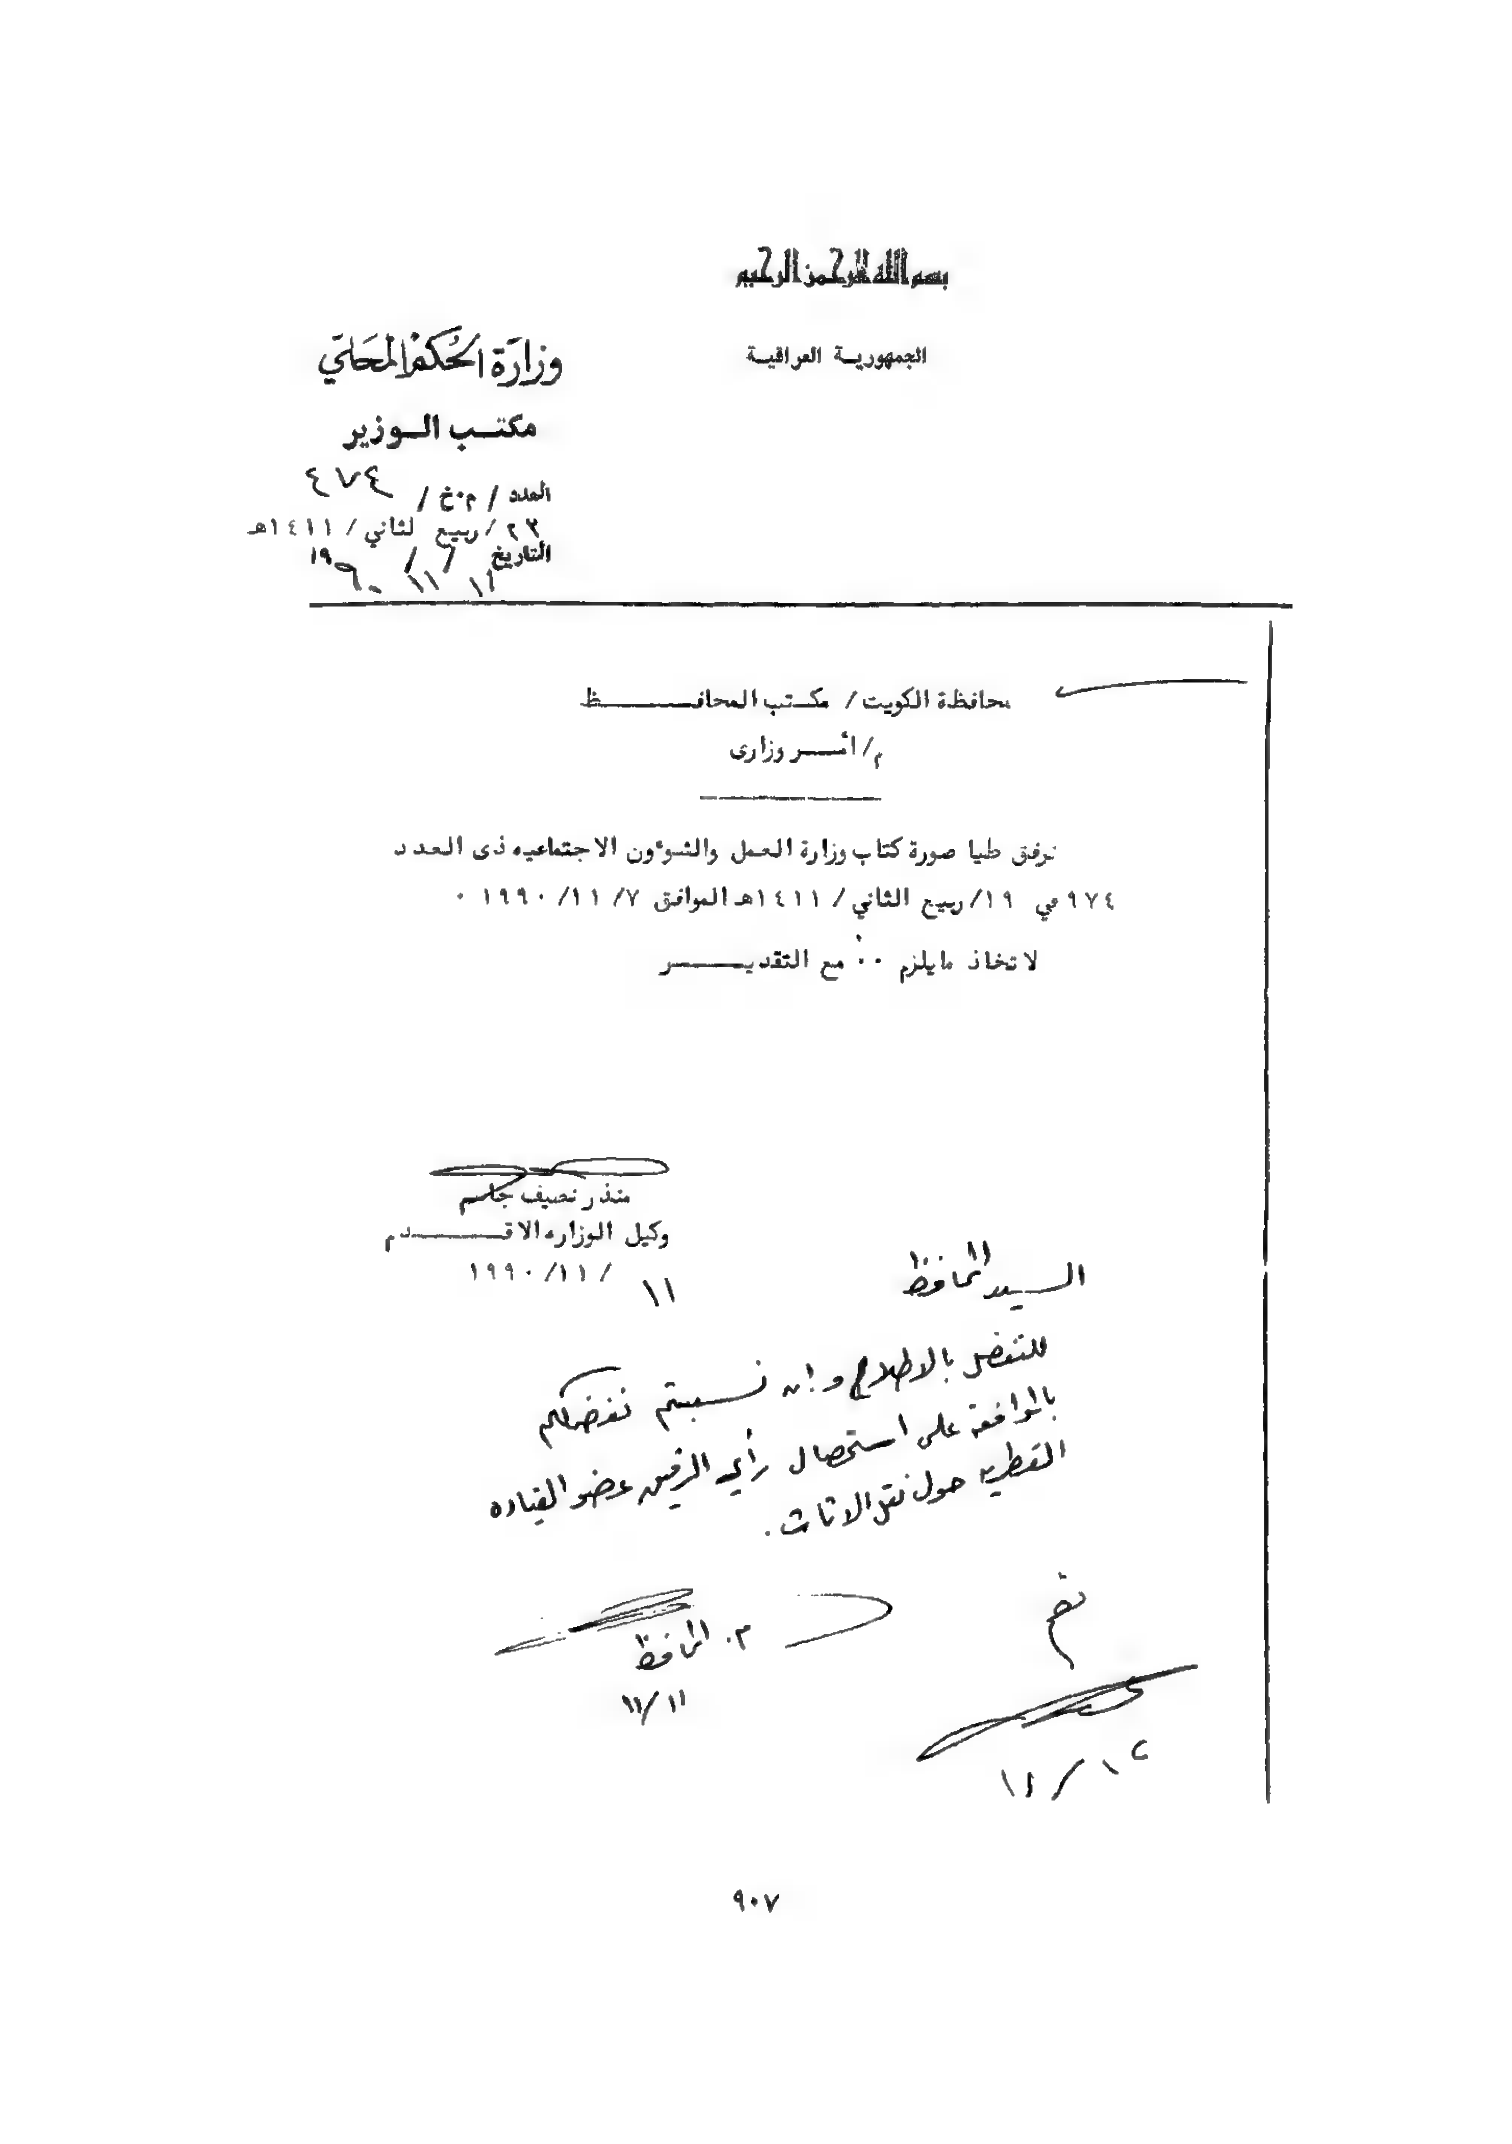 بسم الله الرحمن الرحيم
الجمهورية العراقية
وزارة الحكم المحلي
مكتب الوزير
العدد / م٠خ / ٤٧٤
٢٣ / ربيع الثاني / ١٤١١هـ
التاريخ ١١ / ١١ / ١٩٩٠
محافظة الكويت / مكتب المحافظ
م/ أمر وزارى
نرفق طيا صورة كتاب وزارة العمل والشوءون الاجتماعيه ذى العدد
٩٧٤ في ١٩/ ربيع الثاني / ١٤١١هـ الموافق ٧/ ١١/ ١٩٩٠ ٠
لاتخاذ مايلزم ٠٠ مع التقدير
منذر نصيف جاسم
وكيل الوزاره الاقدم
١١ / ١١/ ١٩٩٠
السيد المحافظ
للتفضل بالاطلاع وان نسبتم تفضلكم
بالموافقة على استحصال رأي الرفيق عضو القياده
القطريه حول نقل الاثاث .
نعم
م. المحافظ
١١/١١
١١ /
٩٠٧